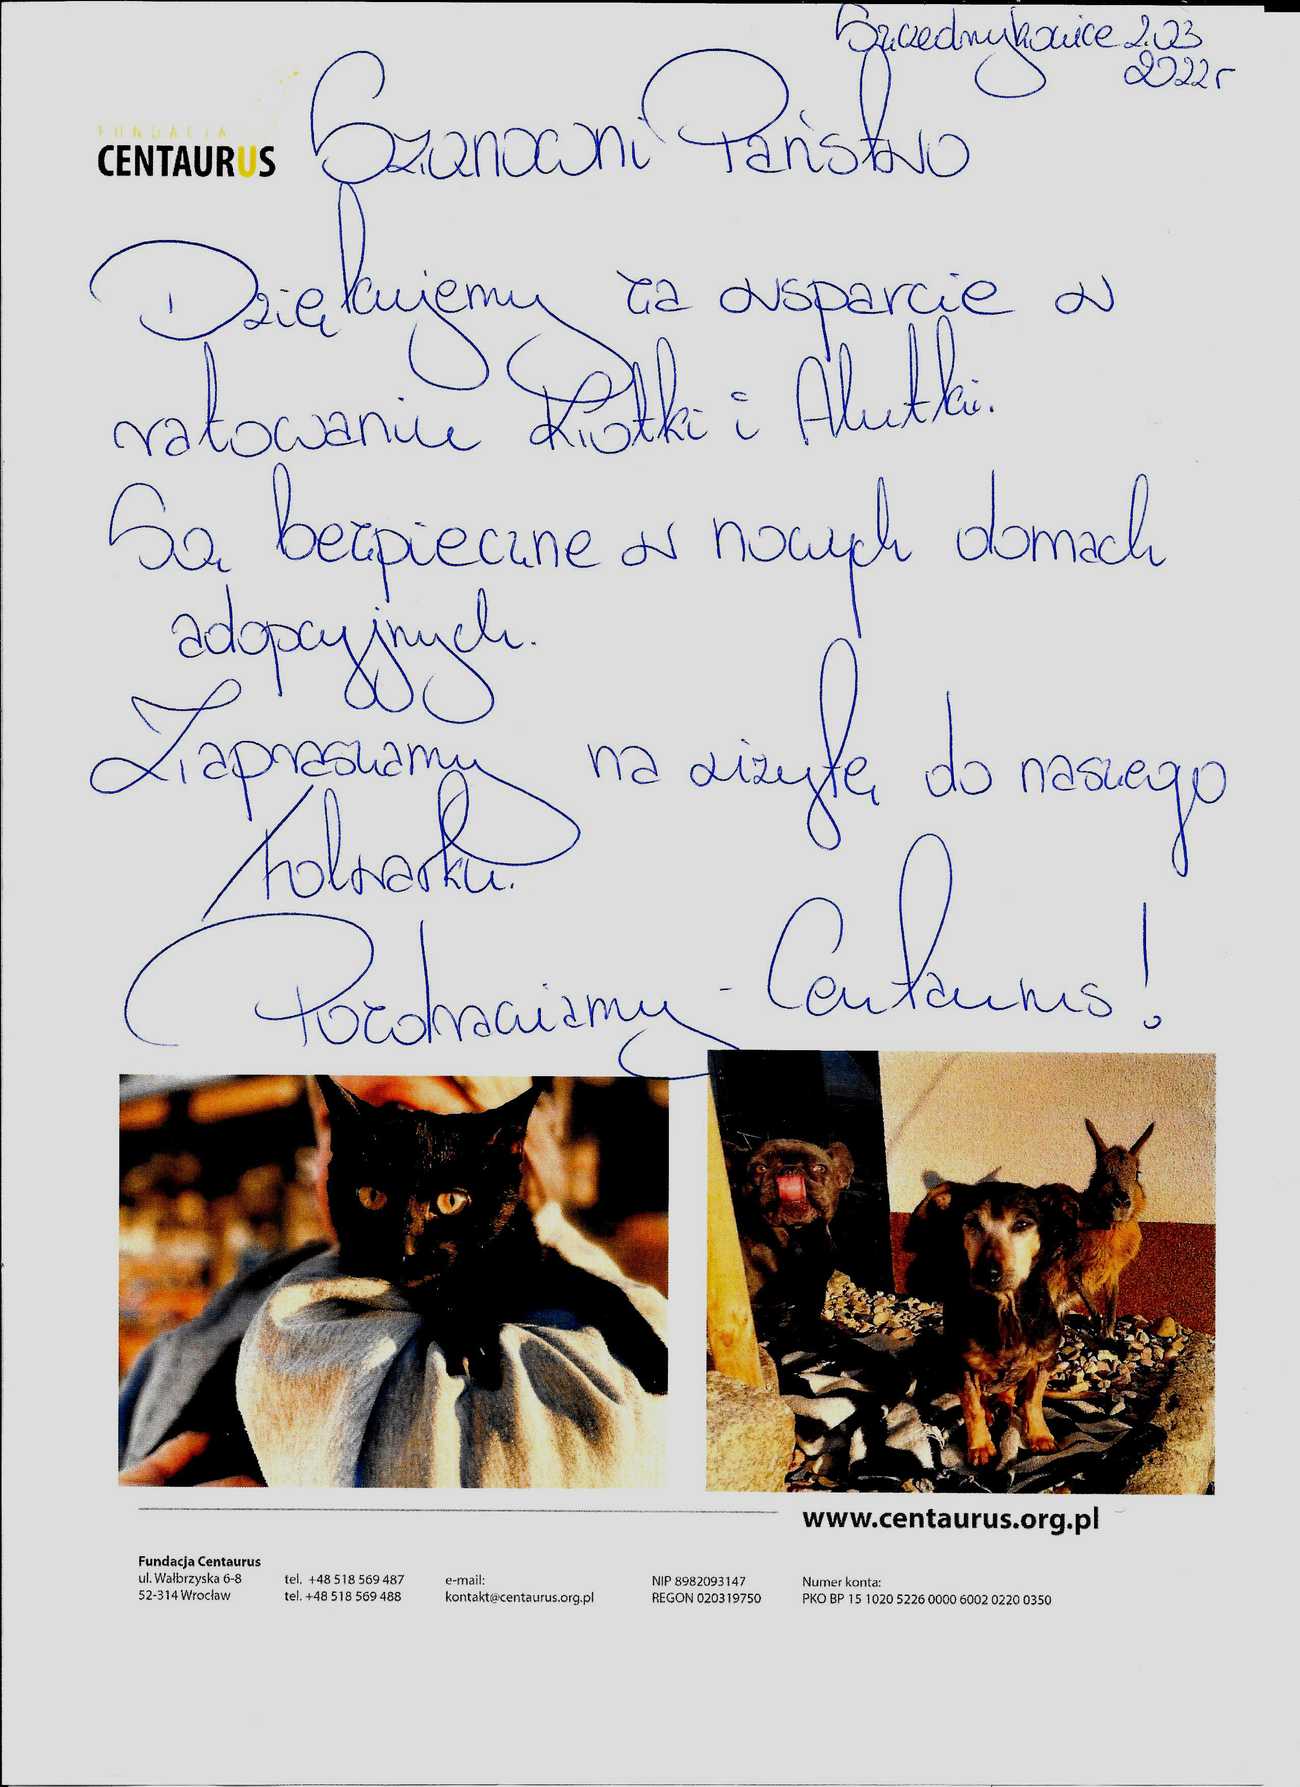 Szczedrzykowice 2.03
2022r
FUNDACJA
CENTAURUS
Szanowni Państwo
Dziękujemy za wsparcie w
ratowaniu Kiotki i Alutki.
Są bezpieczne w nowych domach
adopcyjnych.
Zapraszamy na wizytę do naszego
Folwarku.
Pozdrawiamy - Centaurus!
www.centaurus.org.pl
Fundacja Centaurus
ul. Wałbrzyska 6-8 tel. +48 518 569 487 e-mail: NIP 8982093147 Numer konta:
52-314 Wrocław tel. +48 518 569 488 kontakt@centaurus.org.pl REGON 020319750 PKO BP 15 1020 5226 0000 6002 0220 0350